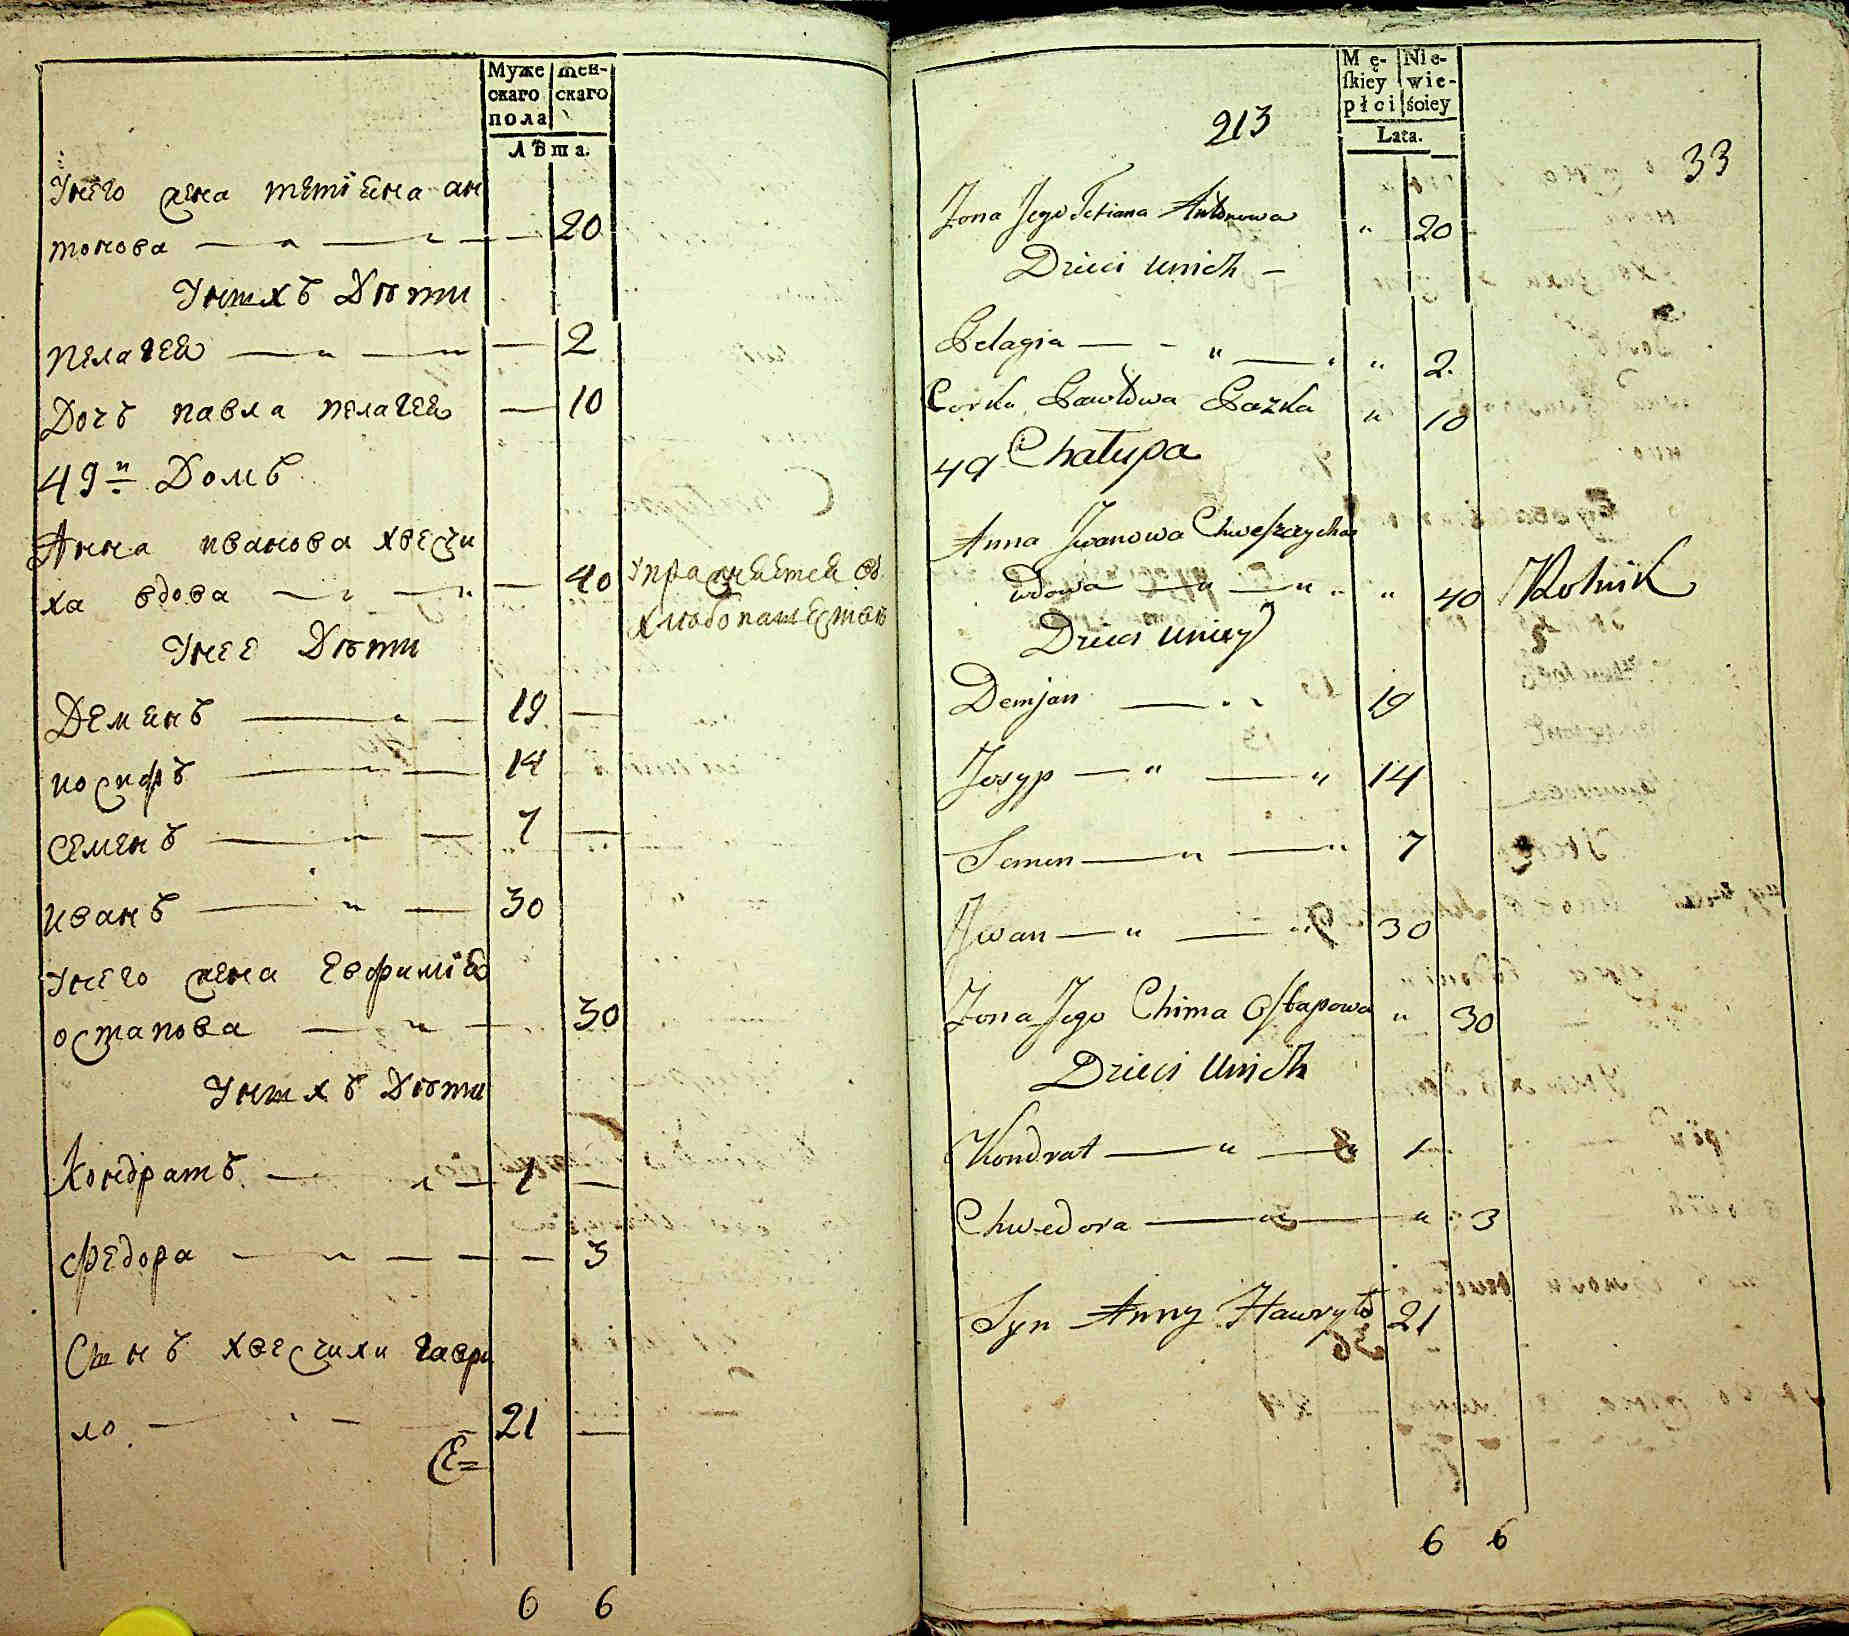 Муже
скаго
пола
жен-
скаго
Лѣта.
Унего жена тетіѧна ан
тонова — " — " — — 20
Унихъ Дѣти
пелагеѧ — " — " — 2
Дочъ павла пелагеѧ — 10
49й Домъ
Анна иванова хвесчи
ха вдова — " — " — 40 упражнѧетсѧ въ
хлѣбопашествѣ
Унее Дѣти
Демѧнъ — " — 19 —
иосифъ — " — 14
Семенъ — " — 7 —
иванъ — " — 30
Унего жена Евфиміѧ
остапова — " — 30
Унихъ Дѣти
Кондратъ — " — 1 —
федора — " — — — 3
Сынъ хвесчихи гаври
ло — " — 21 —
6 6
213
33
Mę-
ſkiey
płci
Nie-
wie-
ściey
Lata.
Zona Jego Tetiana Antonowa " 20
Dzieci unich –
Pelagia — - " — " " 2.
Corka Pawłowa Pazka " 10
49 Chałupa
Anna Jwanowa Chweſzczycha
wdowa — " — " " " 40 Rolnik
Dzieci uniey
Demjan — " " 19
Josyp — " — " 14
Semen — " — " 7
Jwan — " — " 30
Zona Jego Chima Oſtapowa " 30
Dzieci Unich
Kondrat — " — " 1
Chwedora — " — " 3
Syn Anny Hawryło 21
6 6